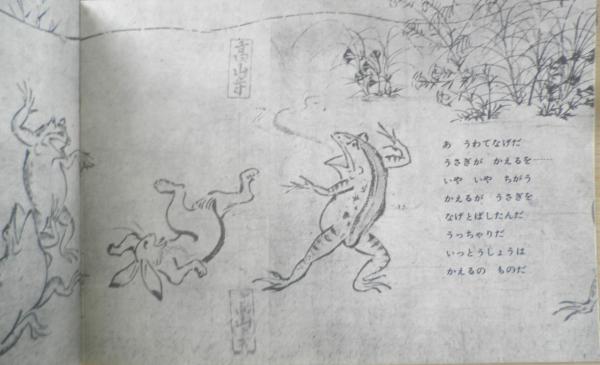 高山寺
あ　うわてなげだ
うさぎが　かえるを……
いや　いや　ちがう
かえるが　うさぎを
なげとばしたんだ
うっちゃりだ
いっとうしょうは
かえるの　ものだ